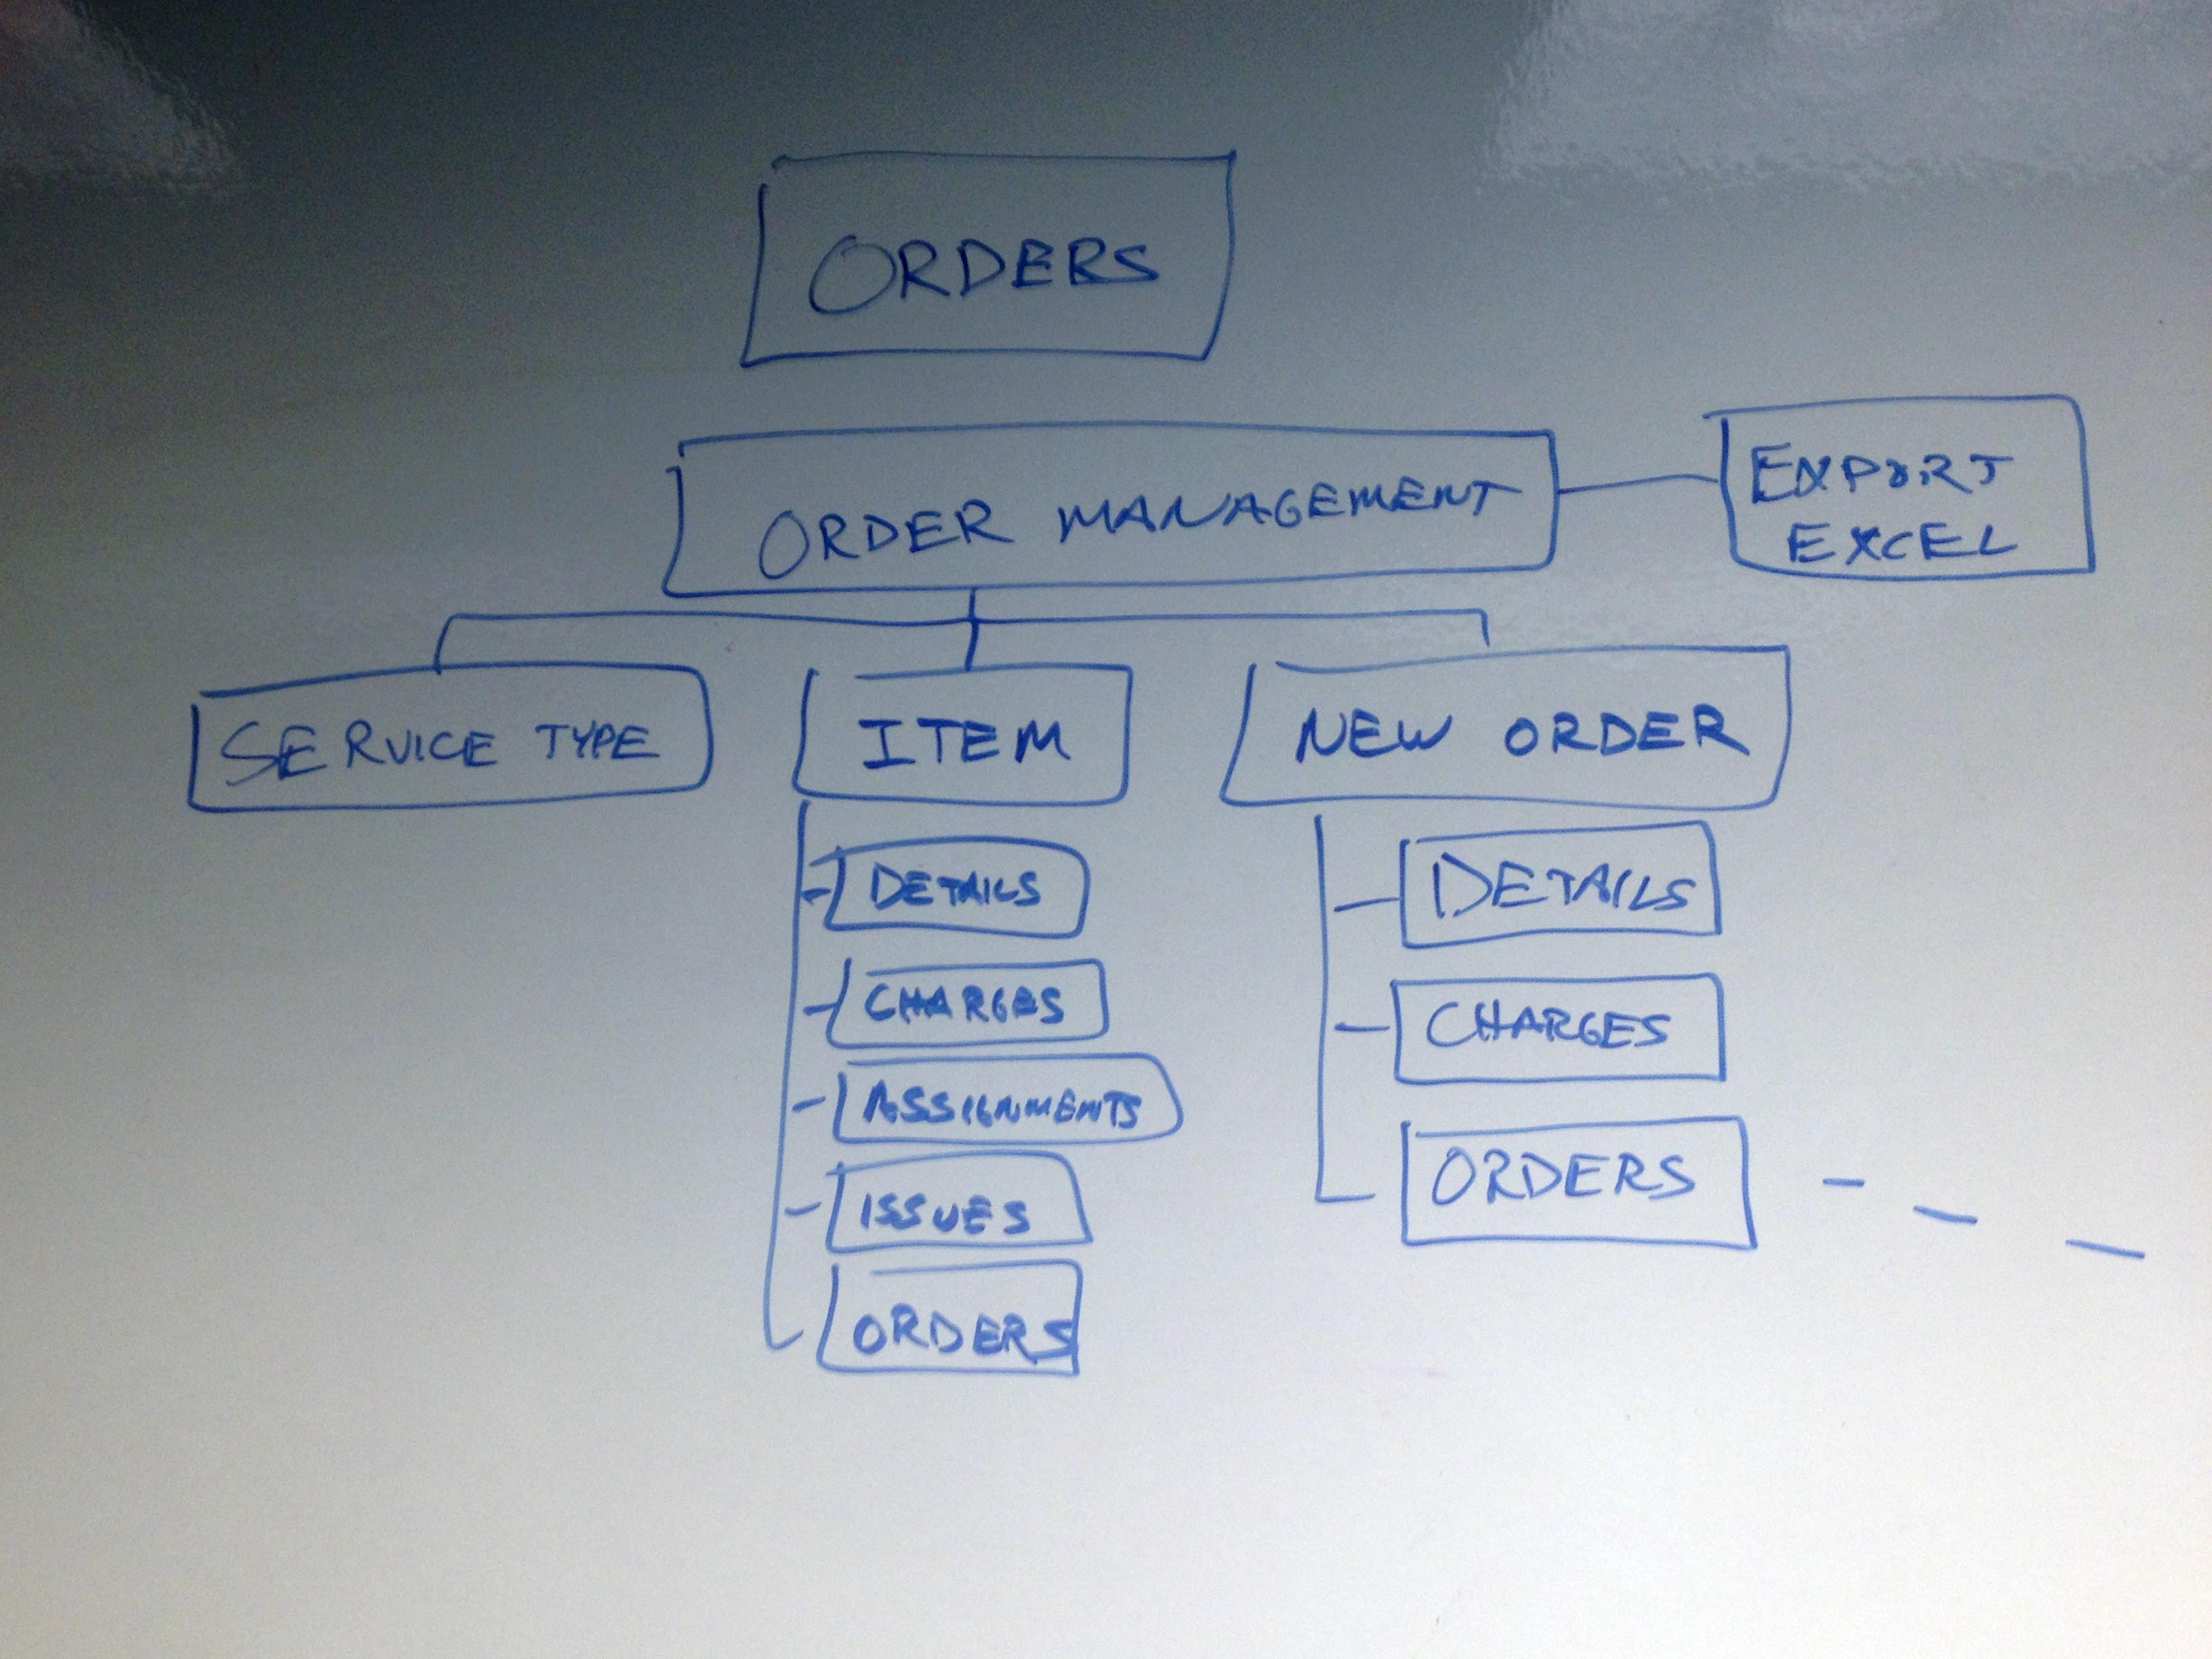 ORDERS
ORDER MANAGEMENT
EXPORT
EXCEL
SERVICE TYPE
ITEM
NEW ORDER
DETAILS
CHARGES
ASSIGNMENTS
ISSUES
ORDERS
DETAILS
CHARGES
ORDERS